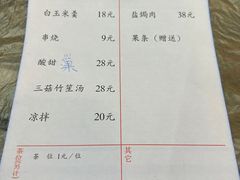 白玉米羹 18元
串烧 9元
酸甜巢 28元
三菇竹笙汤 28元
凉拌 20元
盐焗肉 38元
果条（赠送）
茶位(另计)
茶位 1元/位
其它